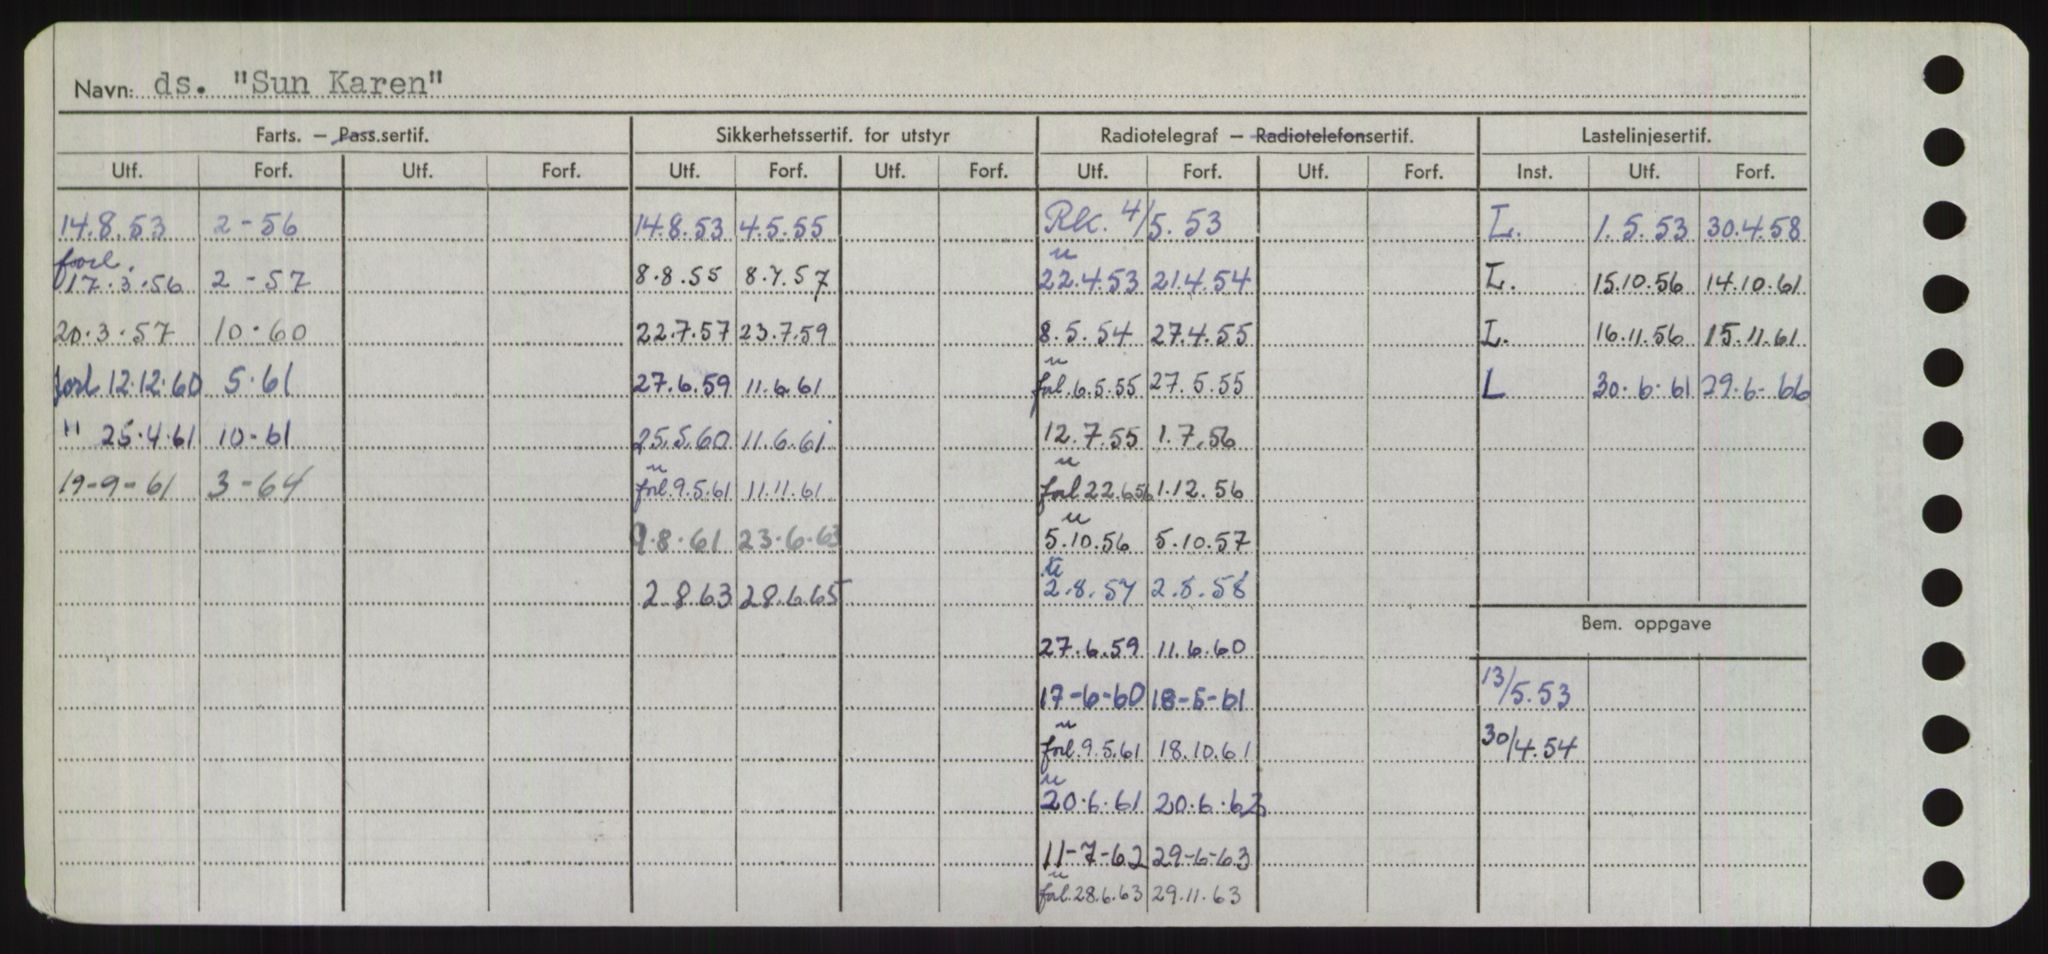 Navn: ds. "Sun Karen"
Farts. — Pass.sertif. Sikkerhetssertif. for utstyr Radiotelegraf — Radiotelefonsertif. Lastelinjesertif.
Utf. Forf. Utf. Forf. Utf. Forf. Utf. Forf. Utf. Forf. Utf. Forf. Inst. Utf. Forf.
14.8.53 2-56 14.8.53 4.5.55 Rk. 4/5.53 L. 1.5.53 30.4.58
forl. 17.3.56 2-57 8.8.55 8.7.57 " 22.4.53 21.4.54 L. 15.10.56 14.10.61
20.3.57 10.60 22.7.57 23.7.59 8.5.54 27.4.55 L. 16.11.56 15.11.61
forl 12.12.60 5.61 27.6.59 11.6.61 " forl.6.5.55 27.5.55 L 30.6.61 29.6-66
" 25.4.61 10-61 25.5.60 11.6.61 12.7.55 1.7.56
19-9-61 3-64 " forl.9.5.61 11.11.61 " forl 22.6.56 1.12.56
9.8.61 23.6.63 " 5.10.56 5.10.57
2.8.63 28.6.65 " 2.8.57 2.8.58
Bem. oppgave
27.6.59 11.6.60
17-6-60 18-5-61 13/5.53
" forl.9.5.61 18.10.61 30/4.54
" 20.6.61 20.6.62
11-7-62 29-6-63
" forl.28.6.63 29.11.63